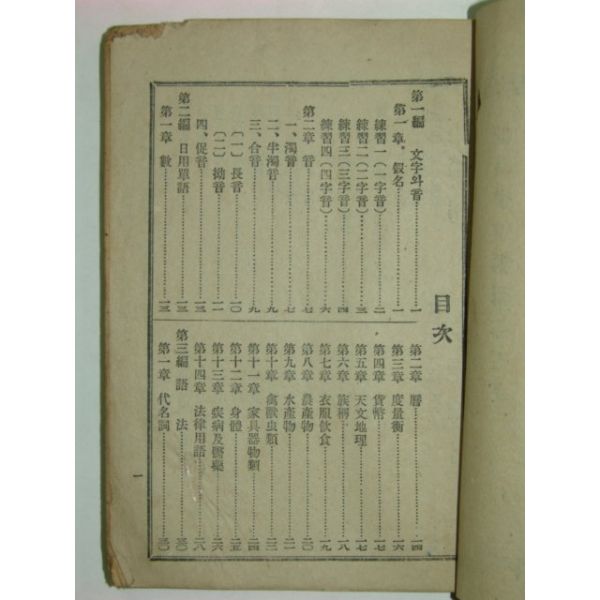 目次
第一編 文字와音……一
第一章. 假名……一
練習一(一字音)……二
練習二(二字音)……三
練習三(三字音)……四
練習四(四字音)……六
第二章 音……七
一、濁音……七
二、半濁音……九
三、合音……九
(一)長音……一〇
(二)拗音……一一
四、促音……一三
第二編 日用單語……一三
第一章 數……一三
第二章 曆……一四
第三章 度量衡……一六
第四章 貨幣……一七
第五章 天文地理……一七
第六章 族稱……一八
第七章 衣服飮食……一九
第八章 農產物……二〇
第九章 水產物……二一
第十章 禽獸虫類……二三
第十一章 家具器物類……二四
第十二章 身體……二五
第十三章 疾病及醫藥……二六
第十四章 法律用語……二八
第三編 語法……三〇
第一章 代名詞……三〇
一